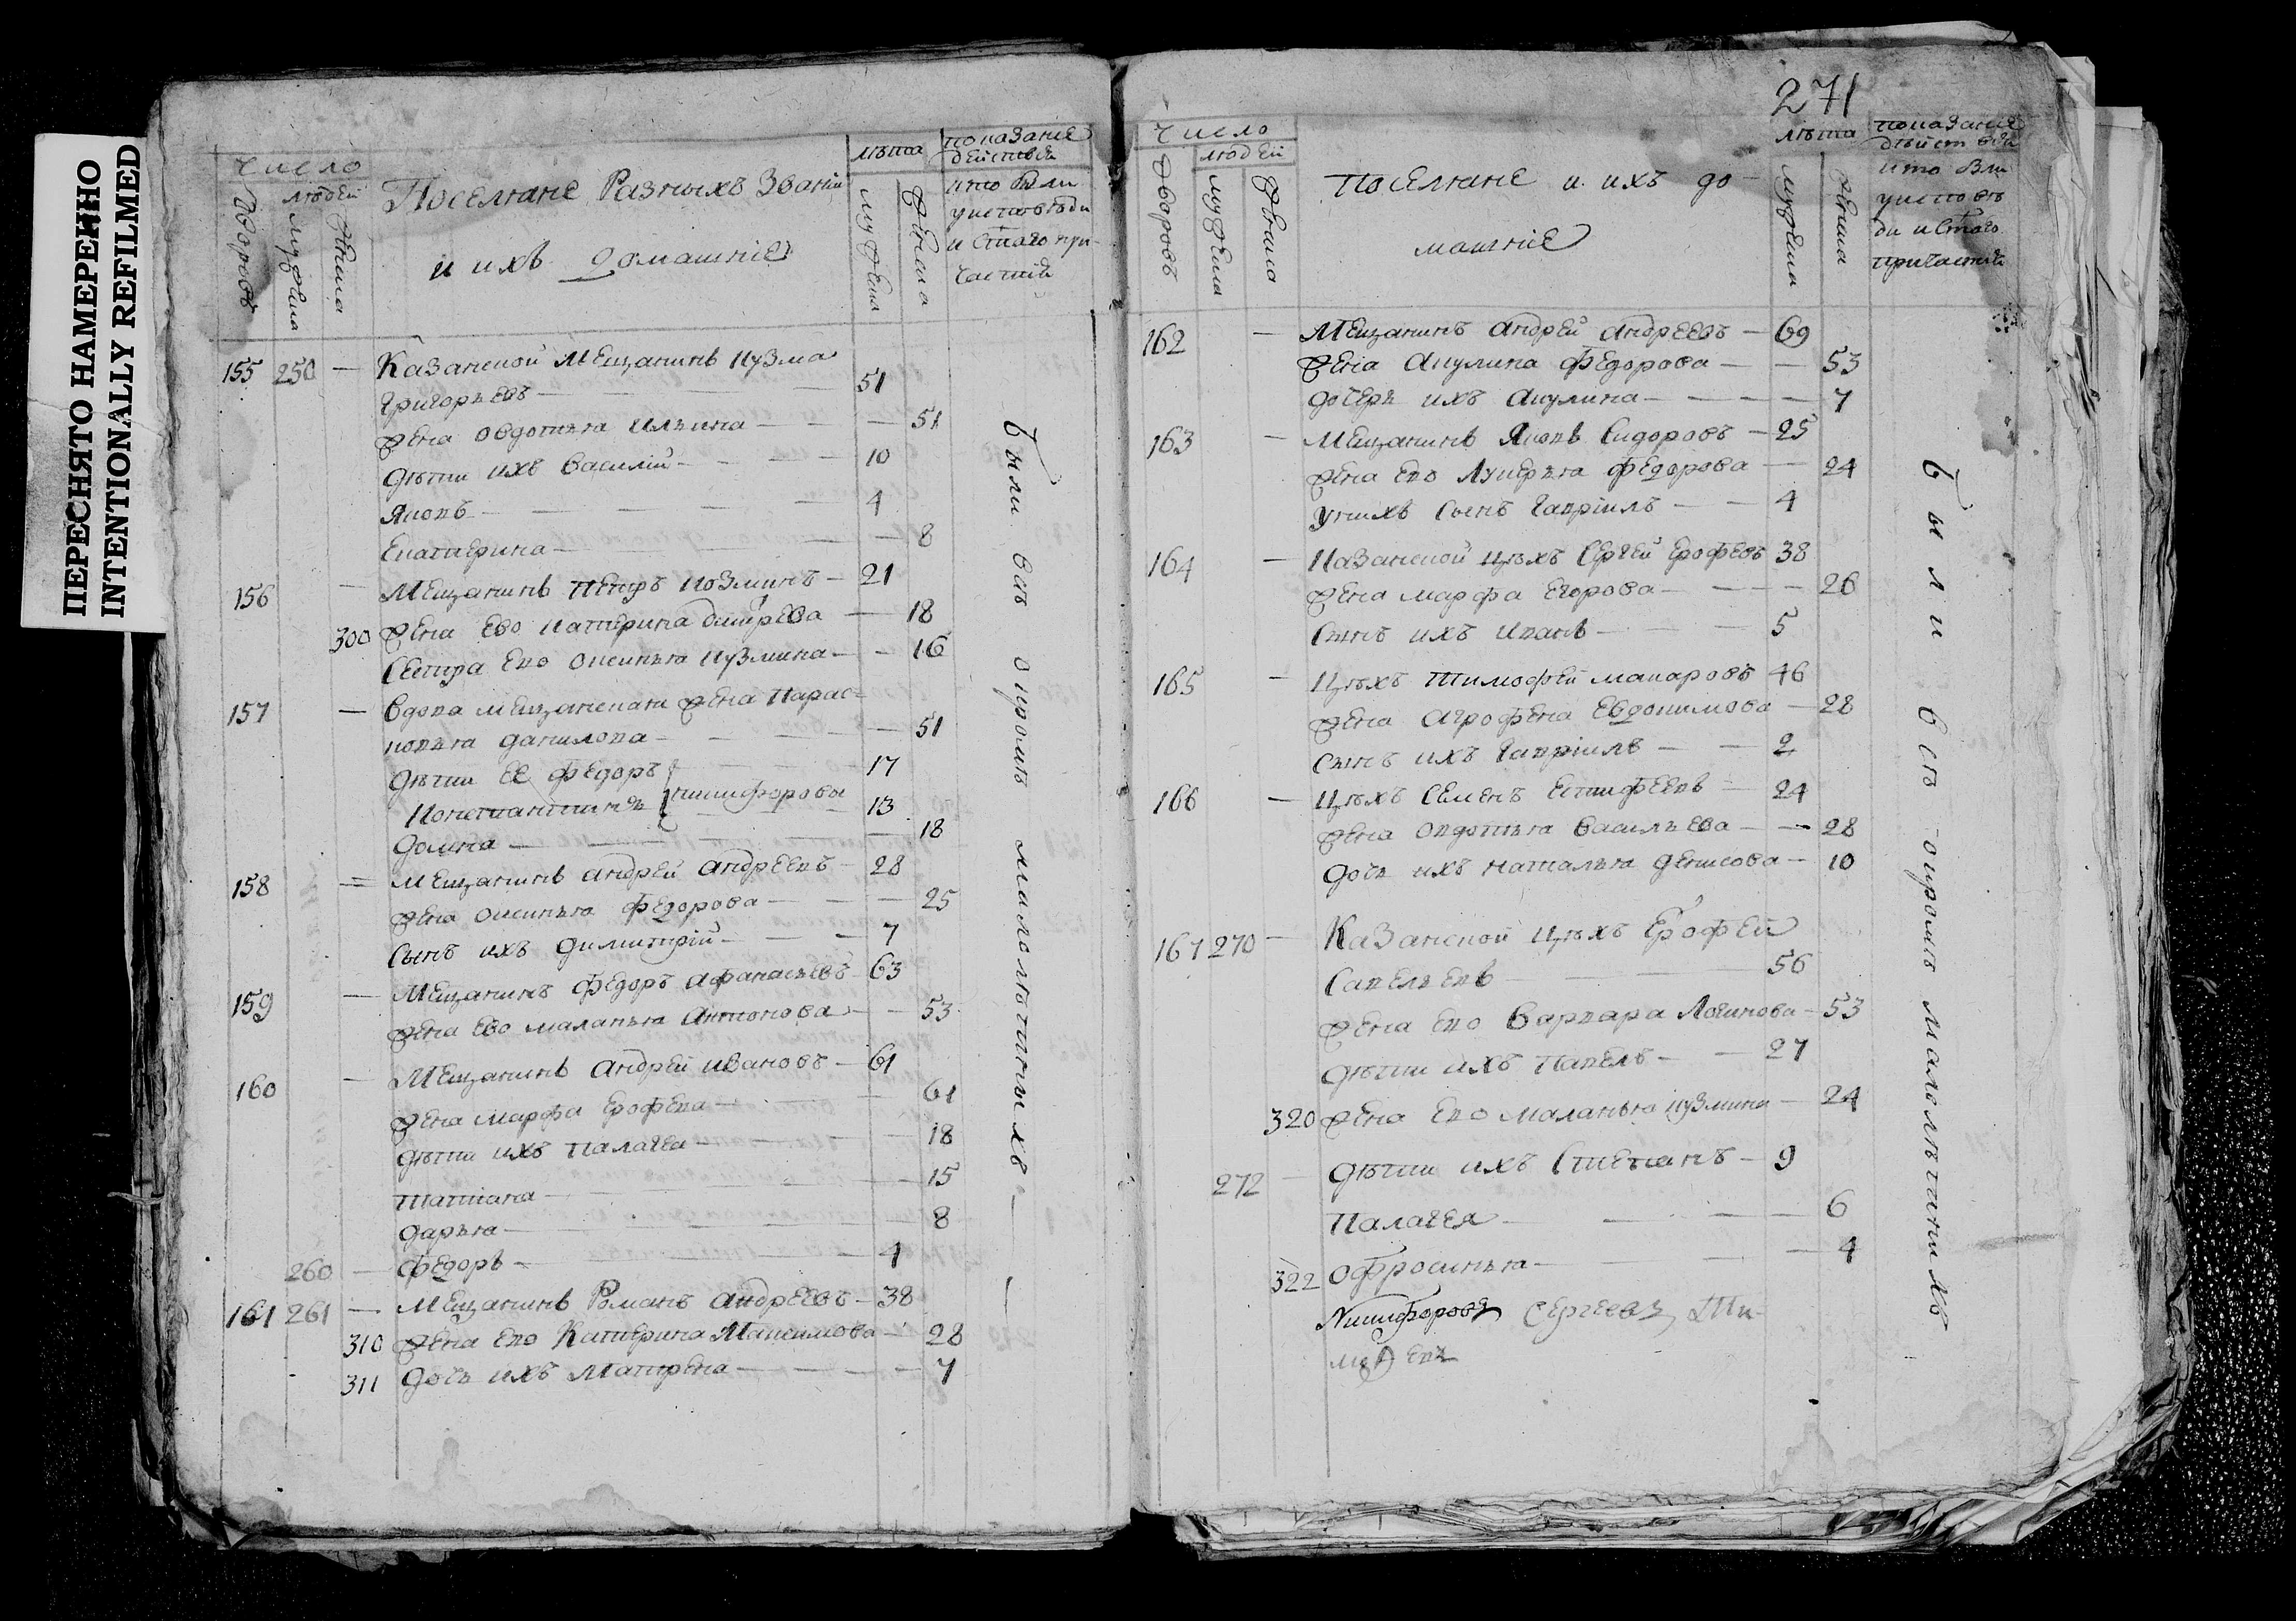 ПЕРЕСНЯТО НАМЕРЕННО
INTENTIONALLY REFILMED
число
дворовъ
людей
мужеска
женска
Поселяне Разныхъ Званій
и ихъ домашніе
лѣта
мужеска
женска
показаніе
дѣйства
кто были
у исповѣди
и Стаго при-
частія
155 250 — Казанской мещанинъ Кузма
Григорьевъ — 51
жена овдотья ильина — 51
дѣти ихъ василий — 10
Яковъ — 4
Екатерина — 8
156 — Мещанинъ Петръ козминъ — 21
300 жена ево катерина дмитрева — 18
Сестра ево оксинья кузмина — 16
157 — вдова мещанская жена Парас=
ковья данилова — 51
дѣти ее федоръ 17
Константинъ никифоровы 13
домна — 18
158 = мещанинъ андрей андреевъ — 28
жена оксинья федорова — 25
Сынъ ихъ димитрій — 7
159 — мещанинъ федоръ афанасьевъ — 63
жена ево маланья антонова — 53
160 — Мещанинъ андрей ивановъ — 61
жена марфа ерофева — 61
дѣти ихъ палагея — 18
татіана — 15
дарья — 8
260 — федоръ — 4
161 261 — мещанинъ Романъ андреевъ — 38
310 жена ево Катерина Максимова — 28
311 дочь ихъ матрена — 7
были всѣ окромѣ малолѣтныхъ
271
число
дворовъ
людей
мужеска
женска
поселяне и ихъ до-
машніе
лѣта
мужеска
женска
показаніе
дѣйства
кто были
у исповѣ
ди и Стаго
причастія
162 — Мещанинъ андрей андреевъ — 69
жена Акулина федорова — 53
дочерь ихъ акулина — 7
163 — мещанинъ Яковъ Сидоровъ — 25
жена ево Лукерья федорова — 24
у нихъ сынъ Гавріилъ — 4
164 — Казанской цѣхъ Сергей ерофеевъ 38
жена марфа егорова — 26
Сынъ ихъ иванъ — 5
165 — Цѣхъ тимофей макаровъ 46
жена агрофена евдокимова — 28
сынъ ихъ Гавріилъ — 2
166 — Цѣхъ Семенъ естифеевъ — 24
жена овдотья васильева — 28
дочь ихъ наталья денисова — 10
167 270 — Казанской цѣхъ ерофей
Савельевъ 56
жена ево варвара Логинова — 53
дѣти ихъ павелъ — 27
320 жена ево маланья кузмина — 24
272 — дѣти ихъ Степанъ — 9
палагея — 6
322 офросинья — 4
Никифоровъ Сергеевъ
были всѣ окромѣ малолѣтнихъ